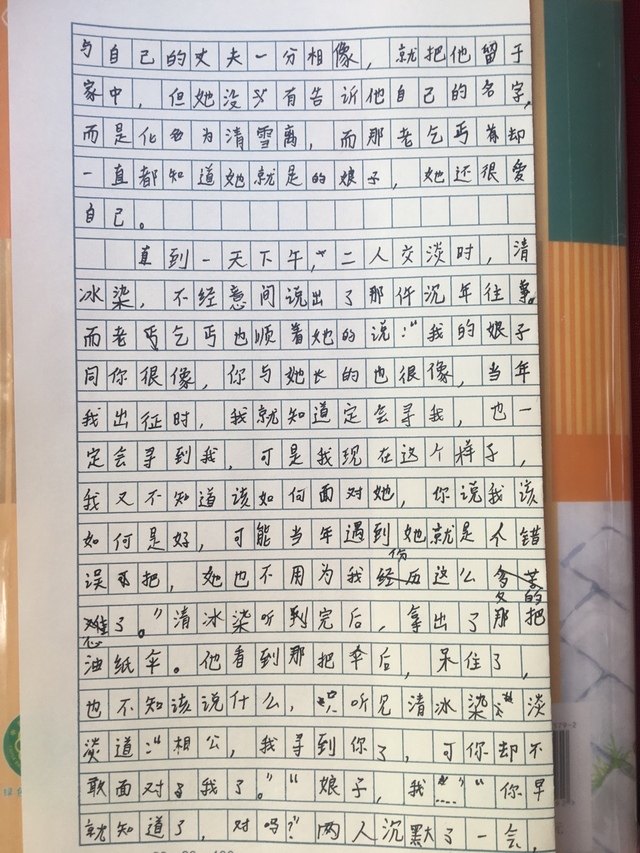 与自己的丈夫一分相像，就把他留于
家中，但她没有告诉他自己的名字，
而是化名为清雪离，而那老乞丐却
一直都知道她就是的娘子，她还很爱
自己。
直到一天下午，二人交淡时，清
冰染，不经意间说出了那件沉年往事。
而老丐乞丐也顺着她的说：“我的娘子
同你很像，你与她长的也很像，当年
我出征时，我就知道定会寻我，也一
定会寻到我，可是我现在这个样子，
我又不知道该如何面对她，你说我该
如何是好，可能当年遇到她就是个错
误把，她也不用为我伤这么多的
心了。”清冰染听到完后，拿出了那把
油纸伞。他看到那把伞后，呆住了，
也不知该说什么，听见清冰染淡
淡道：“相公，我寻到你了，可你却不
敢面对我了。”“娘子，我……”“你早
就知道了，对吗？”两人沉默了一会，